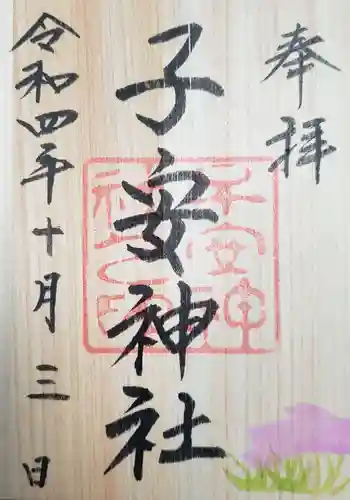 奉拝
子安神社
令和四年十月三日
子安神社之印